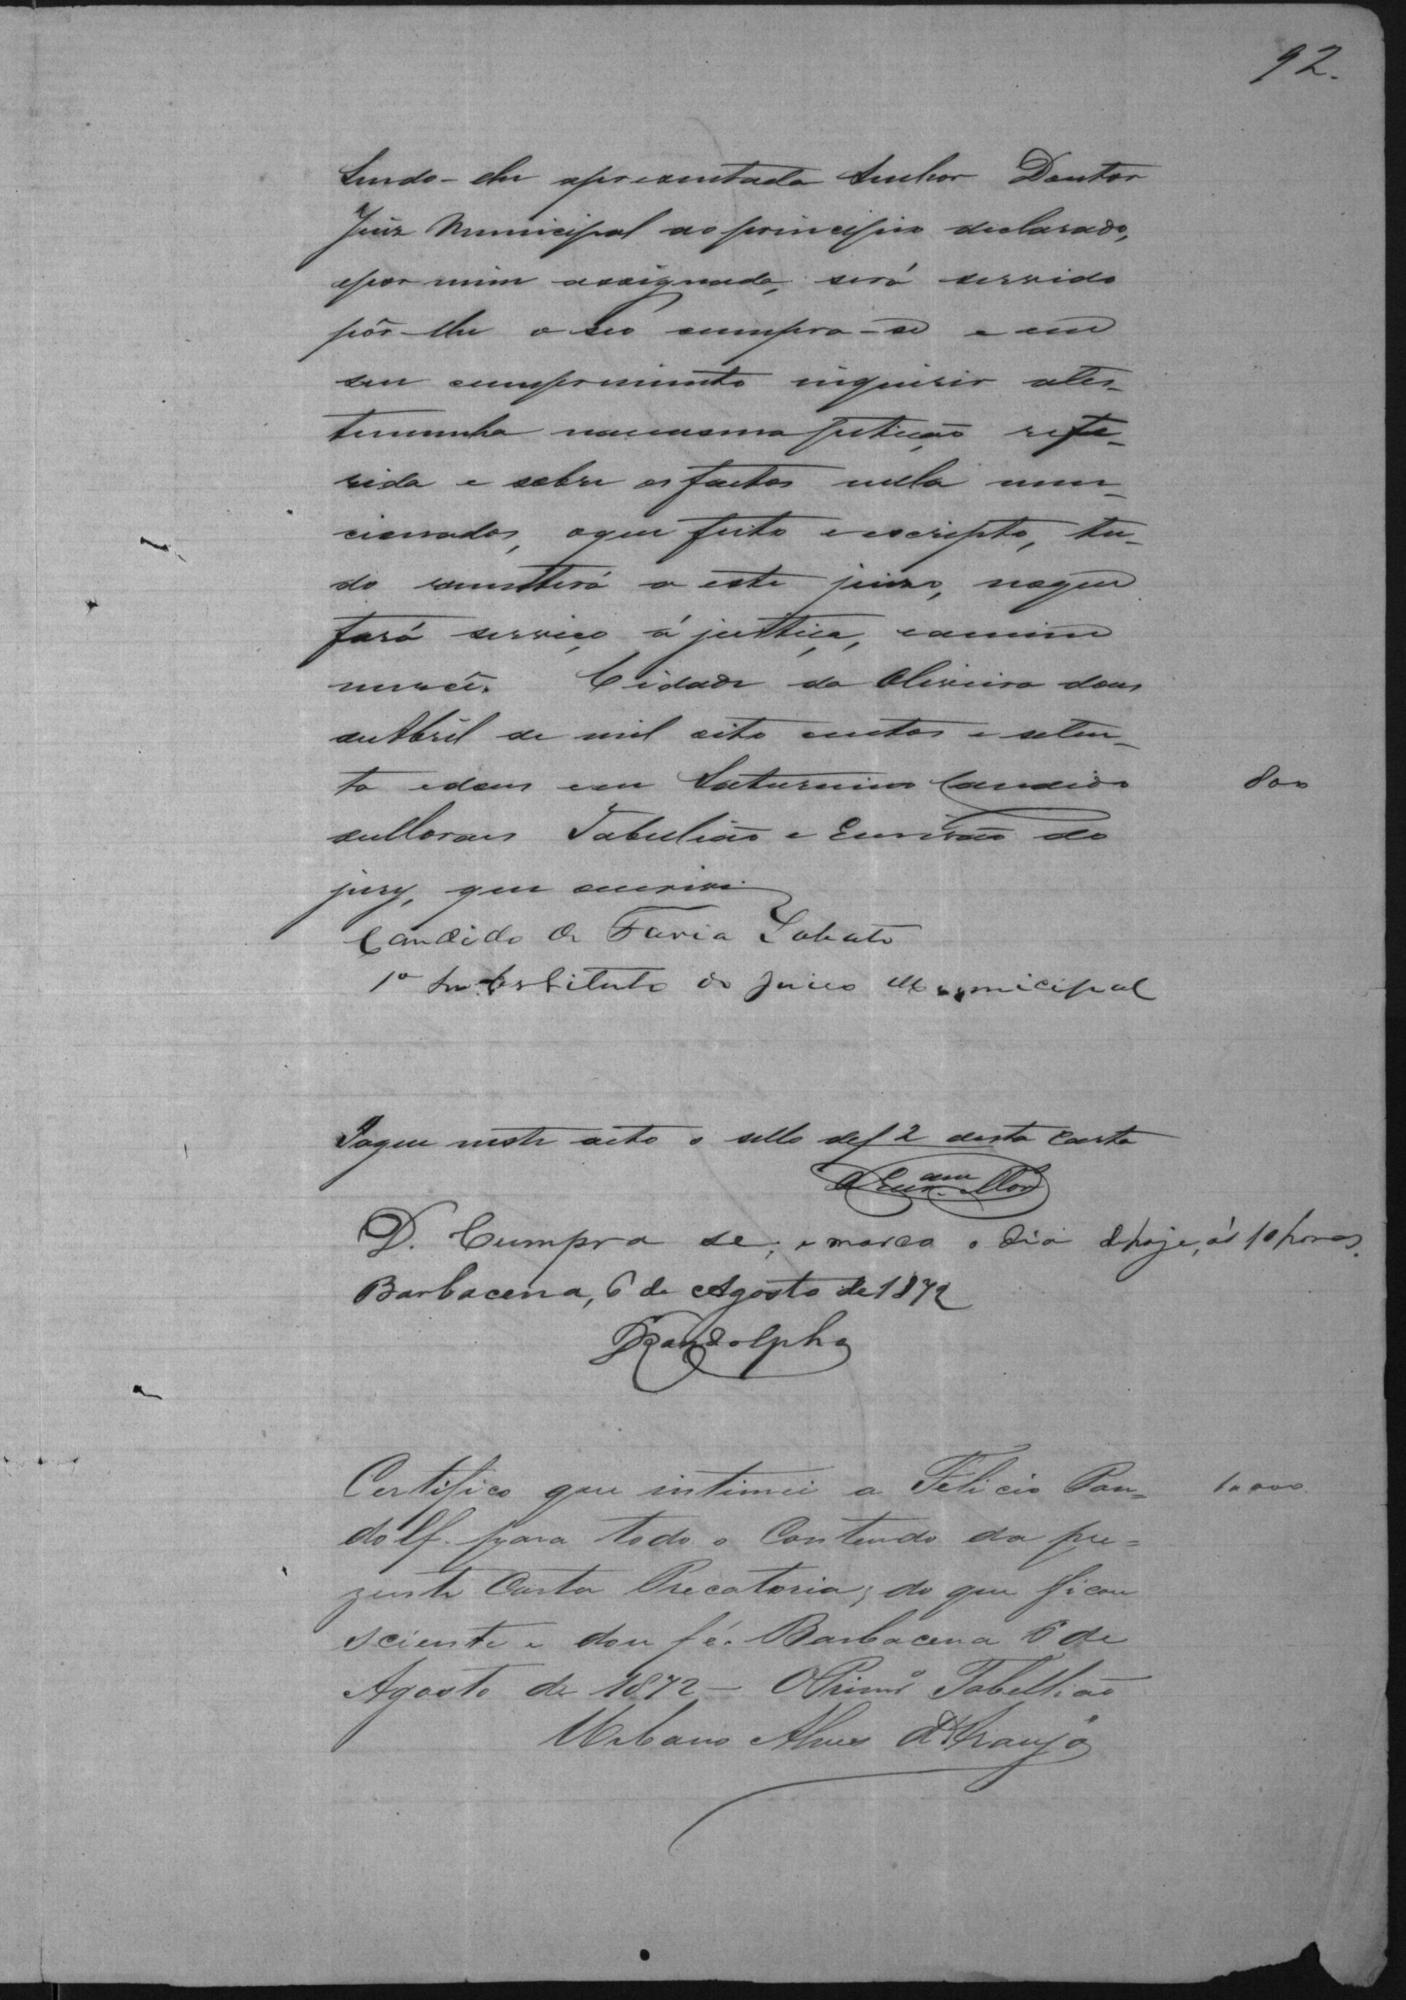 92.
sendo-lhe apresentada Senhor Doutor
Juiz Municipal ao principio declarado,
epor mim assignada, será servido
pôr-lhe o seo cumpra-se e em
seu cumprimento inquirir ates-
temunha namesma petição refe-
rida e sobre os factos nella men-
cionados, oque feito e escripto, tu-
do remetterá a este juizo, noque
fará serviço á justiça, eamim
mercê. Cidade da Oliveira dous
deAbril de mil oito centos e seten-
ta edous eu Saturnino Candido 800
deMoraes Tabelião e Escrivão do
jury, que escrivi
Candido de Faria Lobato
1º Substituto do Juizo Municipal
Pague neste acto o sello def 2 desta Carta
D. Cumpra se; e marco o dia dhoje, ás 10 horas.
Barbacena, 6 de Agosto de 1872
Randolpho
Certifico que intimei a Felicio Pan- 1.000
dolf. para todo o Conteudo da pre-
zente Carta Precatoria; do que ficou
sciente e dou fé. Barbacena 6 de
Agosto de 1872 — O Primº Tabellião
Urbano Alves d'Araujo